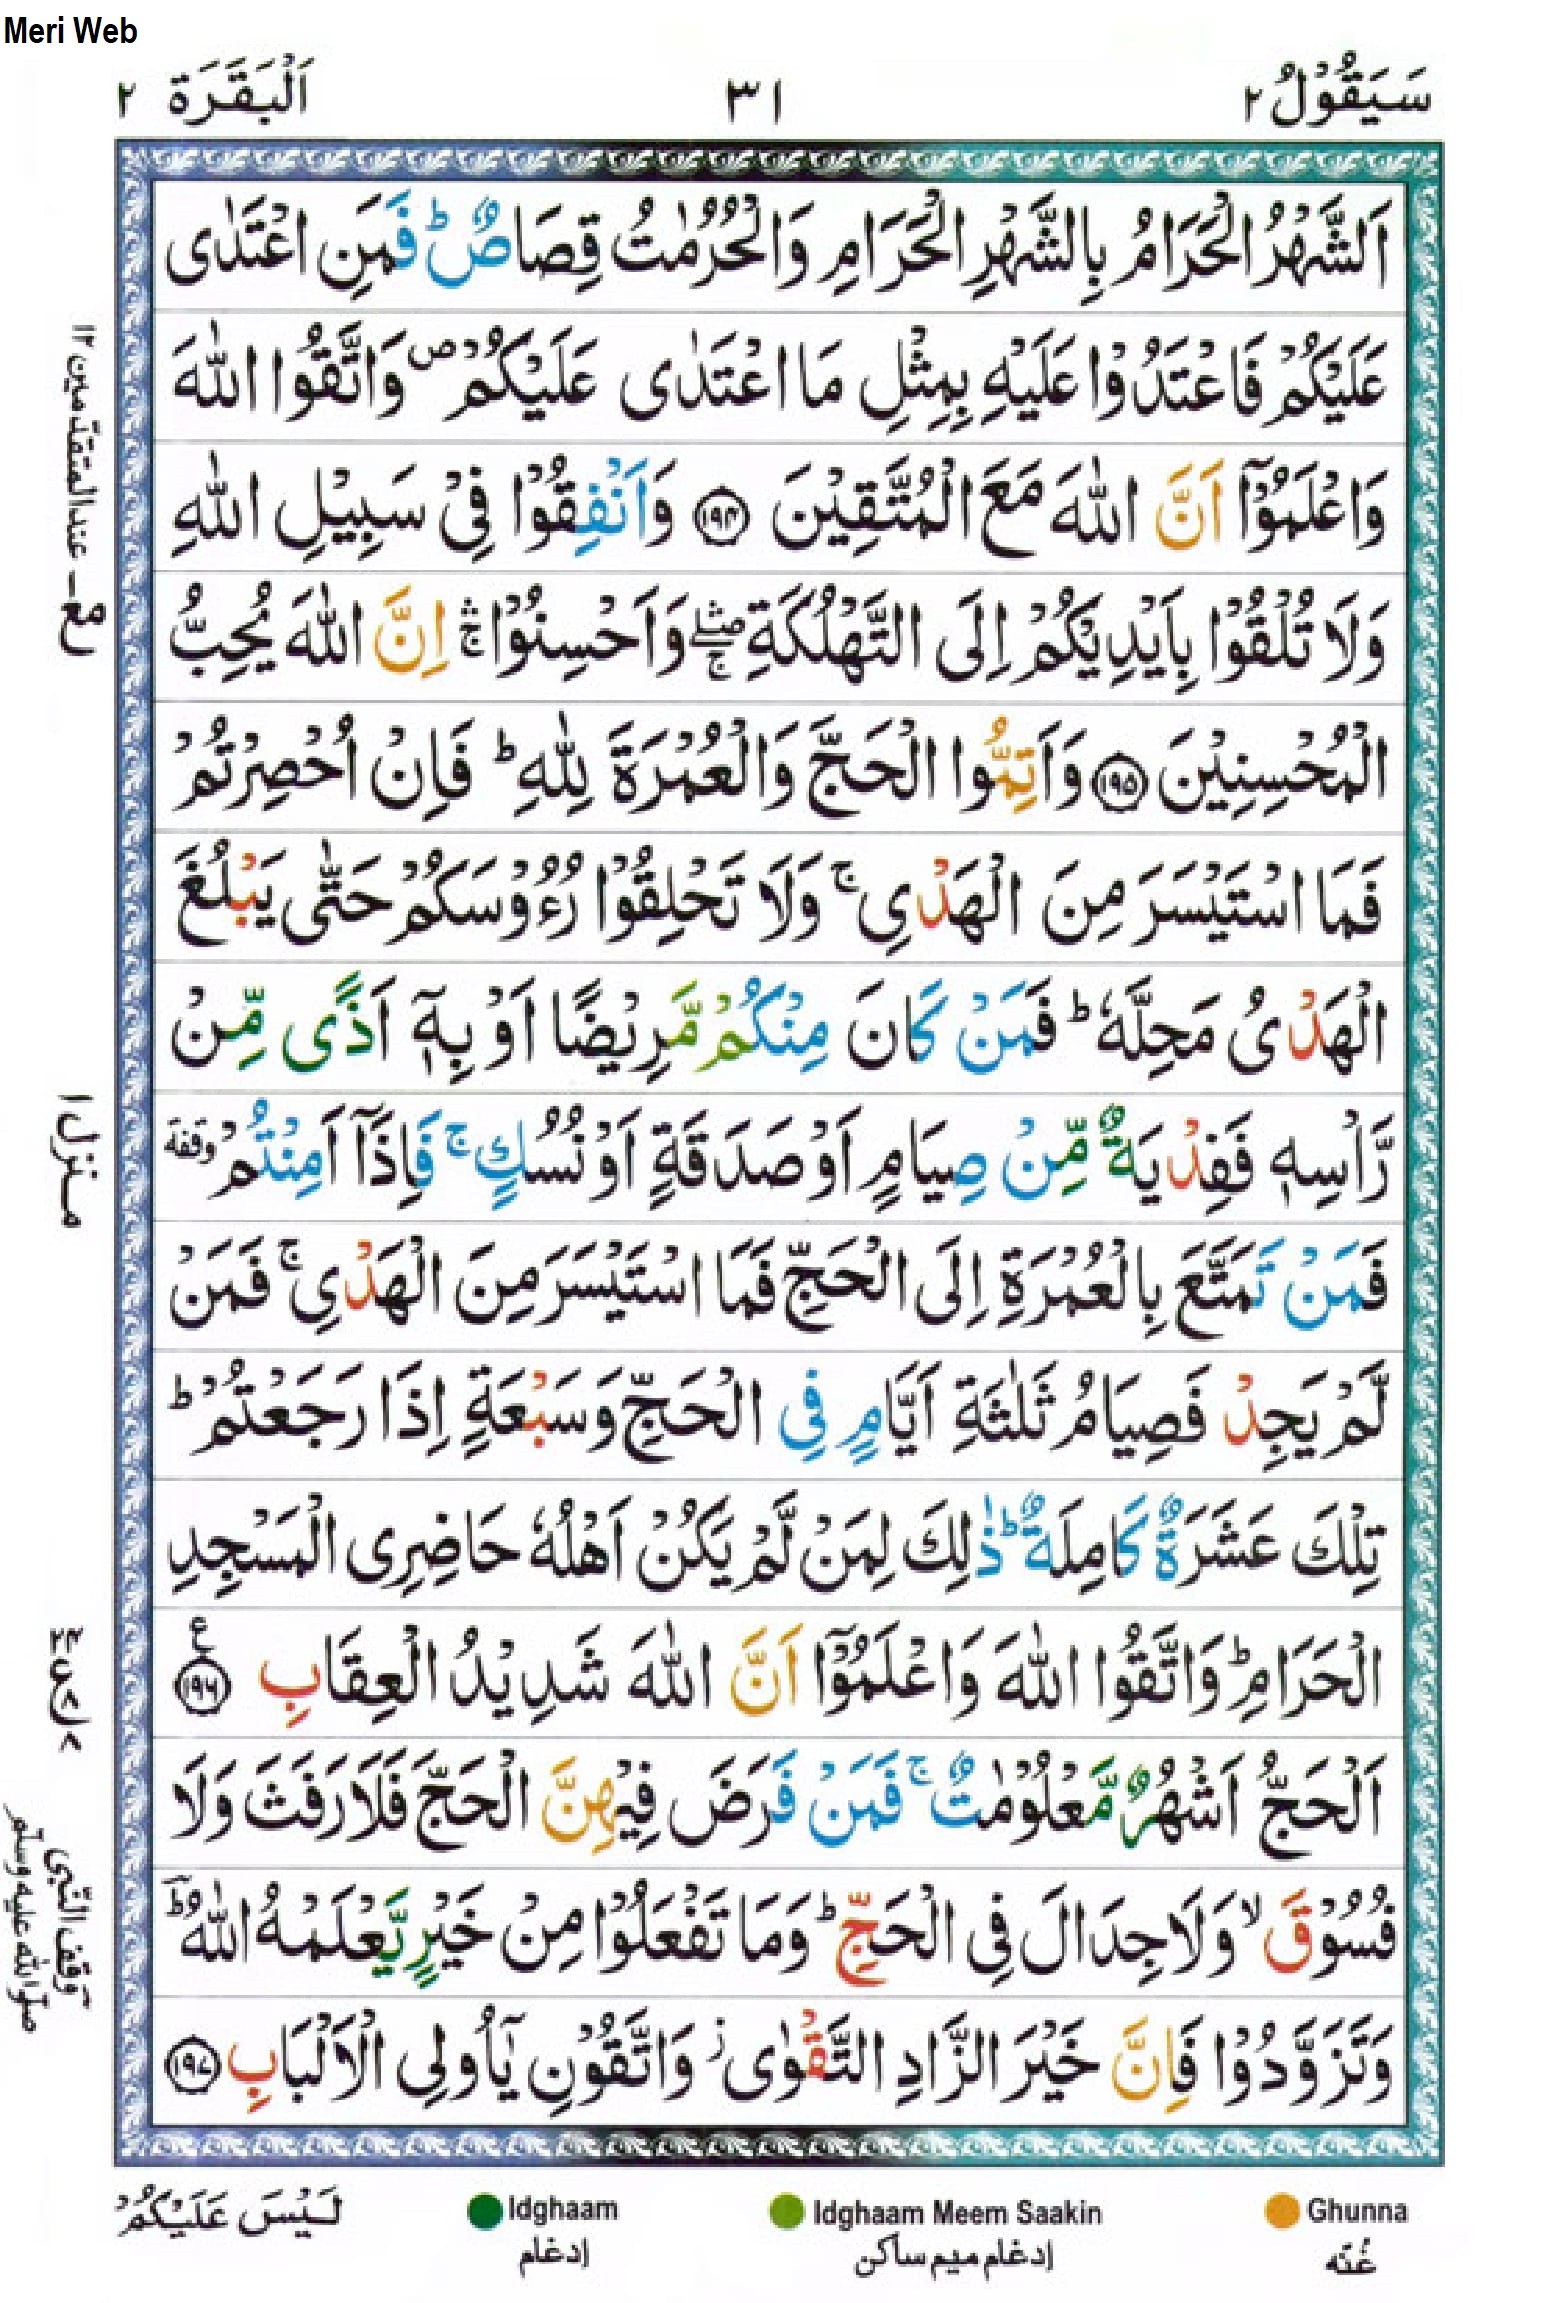 Meri Web
سَيَقُوۡلُ ٢
٣١
اَلۡبَقَرَة ٢
اَلشَّهۡرُ الۡحَرَامُ بِالشَّهۡرِ الۡحَرَامِ وَالۡحُرُمٰتُ قِصَاصٌ ؕ فَمَنِ اعۡتَدٰى
عَلَيۡكُمۡ فَاعۡتَدُوۡا عَلَيۡهِ بِمِثۡلِ مَا اعۡتَدٰى عَلَيۡكُمۡ ص وَاتَّقُوا اللّٰهَ
وَاعۡلَمُوۡٓا اَنَّ اللّٰهَ مَعَ الۡمُتَّقِيۡنَ ۱۹۴ وَاَنۡفِقُوۡا فِىۡ سَبِيۡلِ اللّٰهِ
وَلَا تُلۡقُوۡا بِاَيۡدِيۡكُمۡ اِلَى التَّهۡلُكَةِ ۖۛۚ وَاَحۡسِنُوۡا ۛۚ اِنَّ اللّٰهَ يُحِبُّ
الۡمُحۡسِنِيۡنَ ۱۹۵ وَاَتِمُّوا الۡحَجَّ وَالۡعُمۡرَةَ لِلّٰهِ ؕ فَاِنۡ اُحۡصِرۡتُمۡ
فَمَا اسۡتَيۡسَرَ مِنَ الۡهَدۡىِ ۚ وَلَا تَحۡلِقُوۡا رُءُوۡسَكُمۡ حَتّٰى يَبۡلُغَ
الۡهَدۡىُ مَحِلَّهٗ ؕ فَمَنۡ كَانَ مِنۡكُمۡ مَّرِيۡضًا اَوۡ بِهٖۤ اَذًى مِّنۡ
رَّاۡسِهٖ فَفِدۡيَةٌ مِّنۡ صِيَامٍ اَوۡ صَدَقَةٍ اَوۡ نُسُكٍ ۚ فَاِذَآ اَمِنۡتُمۡ وقفة
فَمَنۡ تَمَتَّعَ بِالۡعُمۡرَةِ اِلَى الۡحَجِّ فَمَا اسۡتَيۡسَرَ مِنَ الۡهَدۡىِ ۚ فَمَنۡ
لَّمۡ يَجِدۡ فَصِيَامُ ثَلٰثَةِ اَيَّامٍ فِى الۡحَجِّ وَسَبۡعَةٍ اِذَا رَجَعۡتُمۡ ؕ
تِلۡكَ عَشَرَةٌ كَامِلَةٌ ؕ ذٰلِكَ لِمَنۡ لَّمۡ يَكُنۡ اَهۡلُهٗ حَاضِرِى الۡمَسۡجِدِ
الۡحَرَامِ ؕ وَاتَّقُوا اللّٰهَ وَاعۡلَمُوۡٓا اَنَّ اللّٰهَ شَدِيۡدُ الۡعِقَابِ ۱۹۶
اَلۡحَجُّ اَشۡهُرٌ مَّعۡلُوۡمٰتٌ ۚ فَمَنۡ فَرَضَ فِيۡهِنَّ الۡحَجَّ فَلَا رَفَثَ وَلَا
فُسُوۡقَ ۙ وَلَا جِدَالَ فِى الۡحَجِّ ؕ وَمَا تَفۡعَلُوۡا مِنۡ خَيۡرٍ يَّعۡلَمۡهُ اللّٰهُ ؕ
وَتَزَوَّدُوۡا فَاِنَّ خَيۡرَ الزَّادِ التَّقۡوٰى ز وَاتَّقُوۡنِ يٰٓاُولِى الۡاَلۡبَابِ ۱۹۷
عند المتقدمین ۱۲
منزل ۱
وقف النبی
صلی الله علیه وسلم
لَيۡسَ عَلَيۡكُمۡ
Idghaam
ادغام
Idghaam Meem Saakin
ادغام میم ساکن
Ghunna
غُنّه